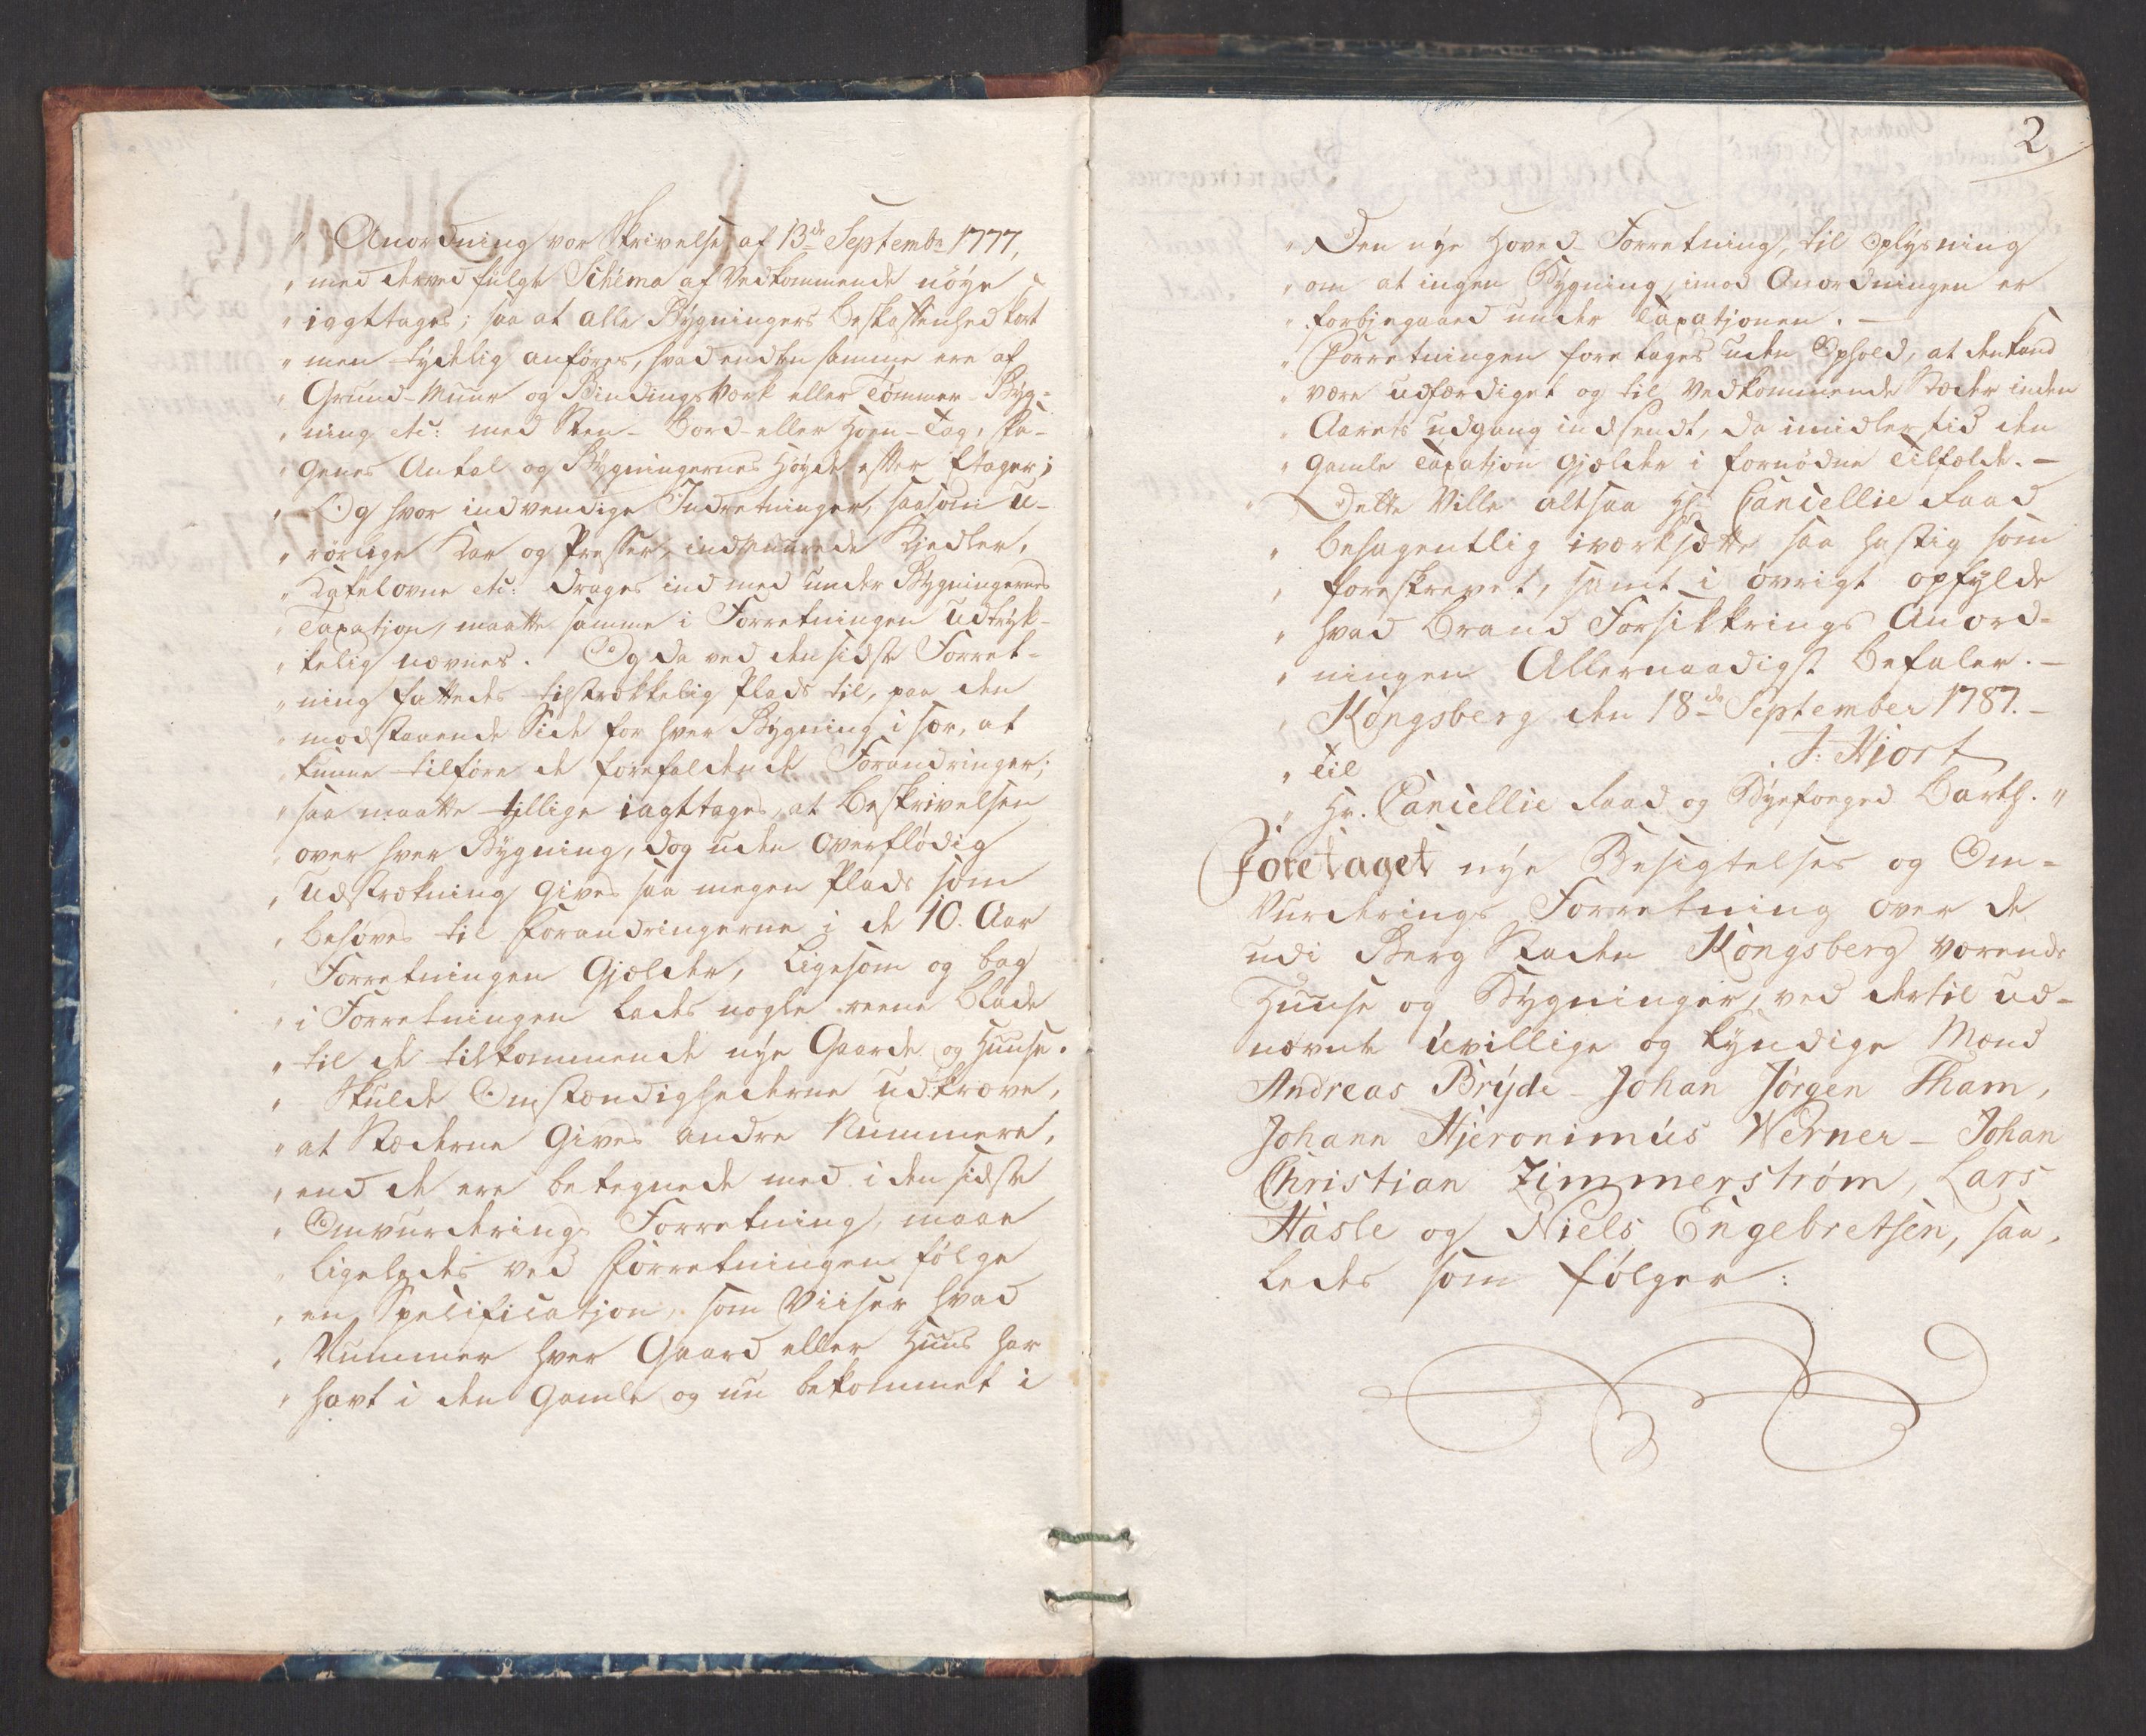 " Anordning vor Skrivelse af 13de Septembr 1777,
" med derved fulgte Schema af Vedkommende nöye
" iagttages; saa at alle Bygningers Beskaffenhed kort
" men tydelig anföres, hvad enten samme ere af
" Grund-Muur og Bindings Værk eller Tömmer-Byg-
" ning etc: med Steen- Bord- eller Horn-Tag, Fa-
" genes Antal og Bygningernes Höyde efter Etager;
" Og hvor indvendige Indretninger, saasom u-
" rörlige Kar og Presser, indmuurede Kjedler,
" Kakelovne etc: drages ind med under Bygningernes
" Taxation, maatte samme i Forretningen udtryk-
" kelig nævnes. Og da ved den sidste Forret-
" ning fattedes tilstrækkelig Plads til, paa den
" modstaaende Side for hver Bygning i sær, at
" kunne tilföre de forefaldende Forandringer;
" saa maatte tillige iagttages, at Beskrivelsen
" over hver Bygning, dog uden overflödig
" udstrækning gives saa megen Plads som
" behöves til Forandringerne i de 10. Aar
" Forretningen Gjelder, ligesom og bag
" i Forretningen lades nogle reene Blade
" til de tilkommende nye Gaarde og Huuse.
" Skulde Omstændighederne udkræve,
" at Stæderne Gives andre Nummere,
" end de ere betegnede med i den sidste
" Omvurderings Forretning, maae
" ligeledes ved Forretningen fölge
" en Specification, som Viiser hvad
" Nummer hver Gaard eller Huus har
" havt i den Gamle og nu bekommet i
2
" Den nye Hoved-Forretning, til Oplysning
" om at ingen Bygning, imod Anordningen er
" forbigaaed under Taxationen. —
" Forretningen foretages uden Ophold, at den kand
" være udfærdiget og til Vedkommende Stæder inden
" Aarets udgang indsendt, da imidlertid den
" Gamle Taxation Gjælder i fornödne Tilfælde. —
" Dette Ville altsaa Hr: Cancellie Raad
" behagentlig iværksætte saa hastig som
" foreskrevet, samt i övrigt opfylde
" hvad Brand Forsikkrings Anord-
" ningen Allernaadigst befaler. —
" Kongsberg den 18de September 1787. —
J: Hjort
" Til
" Hr. Cancellie Raad og Byefoged Barth. "
Foretaget nye Besigtelses og Om-
Vurderings Forretning over de
udi Berg Staden Kongsberg værende
Huuse og Bygninger, ved dertil ud-
nævnte uvillige og kyndige Mænd
Andreas Bryde - Johan Jörgen Tham,
Johann Hjeronimus Werner - Johan
Christian Zimmerström, Lars
Hasle og Niels Engebretsen, saa-
ledes som fölger: